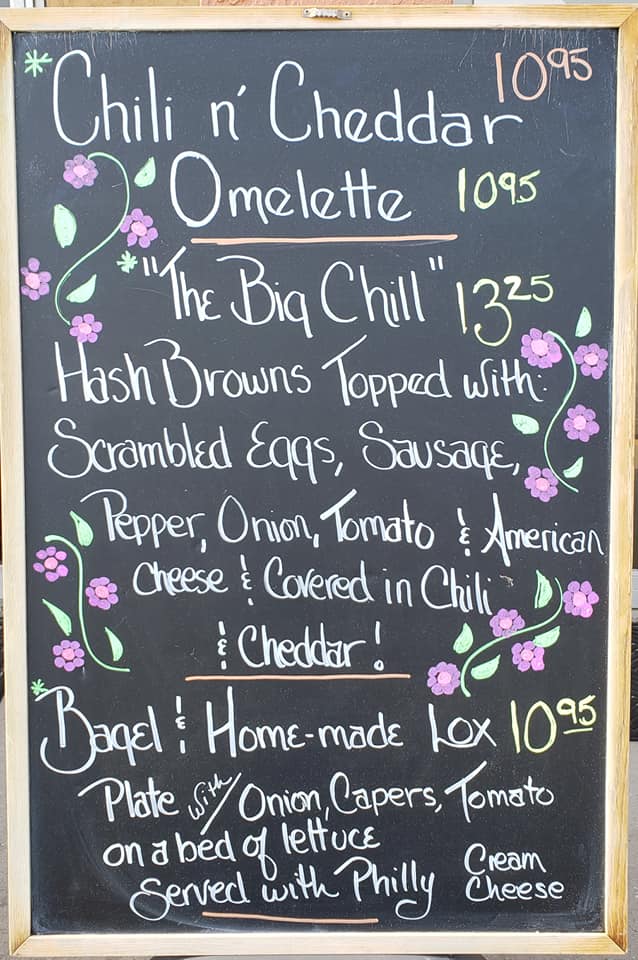 * Chili n' Cheddar 10.95
Omelette 10.95
* "The Big Chill" 13.25
Hash Browns Topped with:
Scrambled Eggs, Sausage,
Pepper, Onion, Tomato & American
Cheese & Covered in Chili
& Cheddar!
* Bagel & Home-made Lox 10.95
Plate with/ Onion, Capers, Tomato
on a bed of lettuce
Served with Philly Cream Cheese